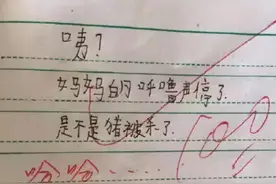 咦？
妈妈的呼噜声停了.
是不是猪被杀了.
哈哈.....